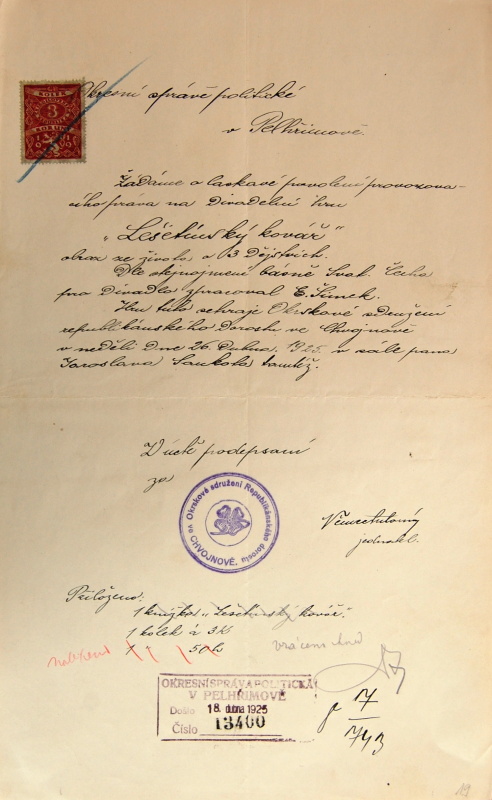 KOLEK
3
KORUNY
1919
Okresní správě politické
v Pelhřimově.
Žádáme o laskavé povolení provozova-
cího práva na Divadelní hru
„Lešetínský kovář"
obraz ze života o 3 Dějstvích.
Dle stejnojmené básně Svat. Čecha
pro Divadlo zpracoval E. Šimek.
Hru tuto sehraje Okrskové sdružení
republikánského Dorostu ve Chvojnově
v neděli Dne 26. Dubna. 1925. v sále pana
Jaroslava Soukola tamtéž.
V úctě podepsaní
za
Okrskové sdružení Republikánského dorostu
ve CHVOJNOVĚ.
jednatel.
Přiloženo:
1 knížka „Lešetínský kovář".
1 kolek á 3 K
50 h
vráceno
OKRESNÍ SPRÁVA POLITICKÁ
V PELHŘIMOVĚ
Došlo 18. dubna 1925
Číslo 13400
17
743
19